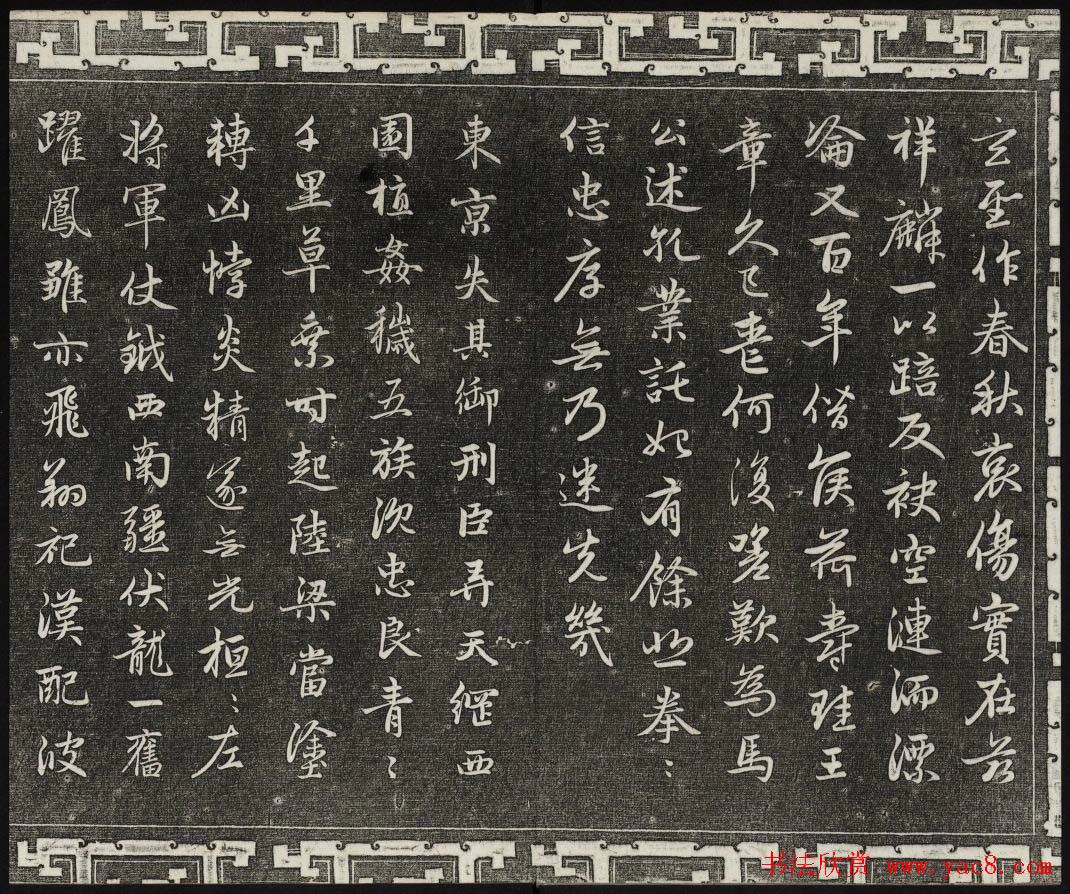 玄聖作春秋哀傷實在茲
祥麟一以踣反袂空漣洏漂
淪又百年僭侯荷爵珪王
章久已喪何復嗟歎為馬
公述孔業託始有餘悲拳〻
信忠厚無乃迷先幾
東京失其御刑臣弄天綱西
園植姦穢五族沉忠良青〻
千里草乘時起陸梁當塗
轉凶悖炎精遂無光桓〻左
將軍仗鉞西南疆伏龍一奮
躍鳳雛亦飛翔祀漢配彼
书法欣赏 www.yac8.com